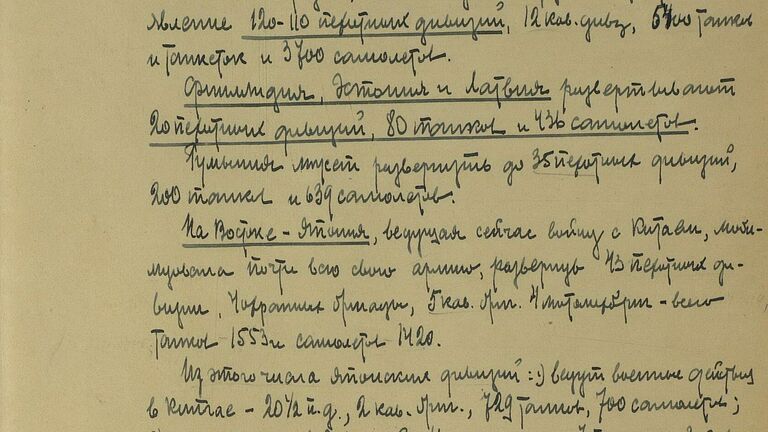 явление 120-110 пехотных дивизий, 12 кав. див., 5400 танков
и танкеток и 3700 самолетов.
Финляндия, Эстония и Латвия развертывают
20 пехотных дивизий, 80 танков и 436 самолетов.
Румыния может развернуть до 35 пехотных дивизий,
200 танков и 639 самолетов.
На Востоке – Япония, ведущая сейчас войну с Китаем, моби-
лизовала почти всю свою армию, развернув 43 пехотных ди-
визии, 4 охранных бригады, 5 кав. бриг. 4 мотомехбриг – всего
танков 1553 и самолетов 1420.
Из этого числа японских дивизий: ведут военные действия
в Китае – 20½ п.д., 2 кав. бриг., 729 танков, 700 самолетов;